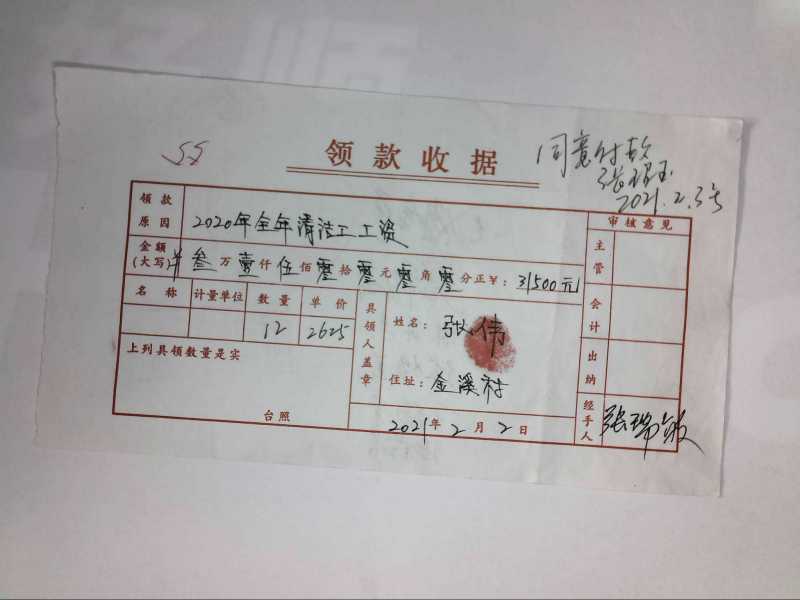 55
领款收据
同意付款
2021.2.3号
领款原因 2020年全年清洁工工资
审核意见
金额(大写) 叁万壹仟伍佰零拾零元零角零分正¥:31500元
主管
名称 计量单位 数量 单价
12 2625
具领人盖章
姓名: 张伟
会计
上列具领数量是实
住址: 金溪村
出纳
台照
2021年2月2日
经手人